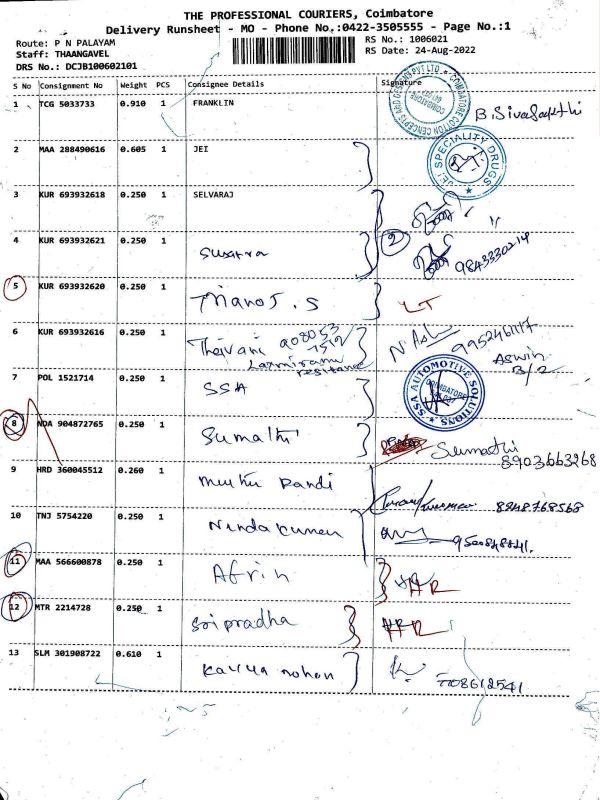 THE PROFESSIONAL COURIERS, Coimbatore
Delivery Runsheet - MO - Phone No.:0422-3505555 - Page No.:1
Route: P N PALAYAM
RS No.: 1006021
Staff: THAANGAVEL
RS Date: 24-Aug-2022
DRS No.: DCJB100602101
S No Consignment No Weight PCS Consignee Details Signature
1 TCG 5033733 0.910 1 FRANKLIN
2 MAA 288490616 0.605 1 JEI
JEI SPECIALITY DRUGS
3 KUR 693932618 0.250 1 SELVARAJ
4 KUR 693932621 0.250 1 2
9843330214
5 KUR 693932620 0.250 1 Manoj. S
6 KUR 693932616 0.250 1 Theivani
Aswin
B/2
7 POL 1521714 0.250 1 SSA
SSA AUTOMOTIVE SOLUTIONS COIMBATORE
8 NDA 904872765 0.250 1 Sumathi Sumathi
8903663268
9 HRD 360045512 0.260 1 Muthu Pandi 8248768568
10 TNJ 5754220 0.250 1 Nandakumar
11 MAA 566600878 0.250 1 Afrin
12 MTR 2214728 0.250 1 Sri pradha
13 SLM 301908722 0.610 1 Kavya mohan